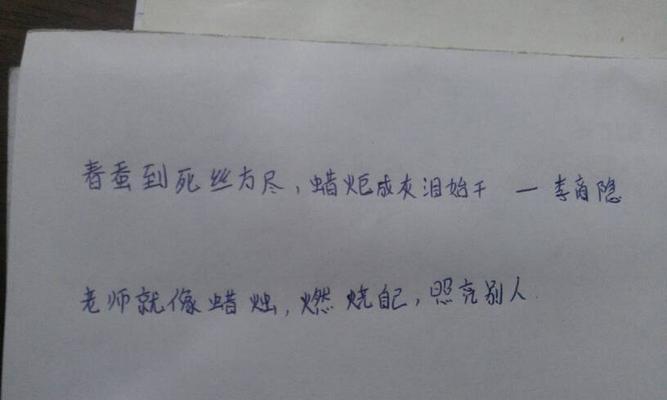 春蚕到死丝方尽，蜡炬成灰泪始干 — 李商隐
老师就像蜡烛，燃烧自己，照亮别人.